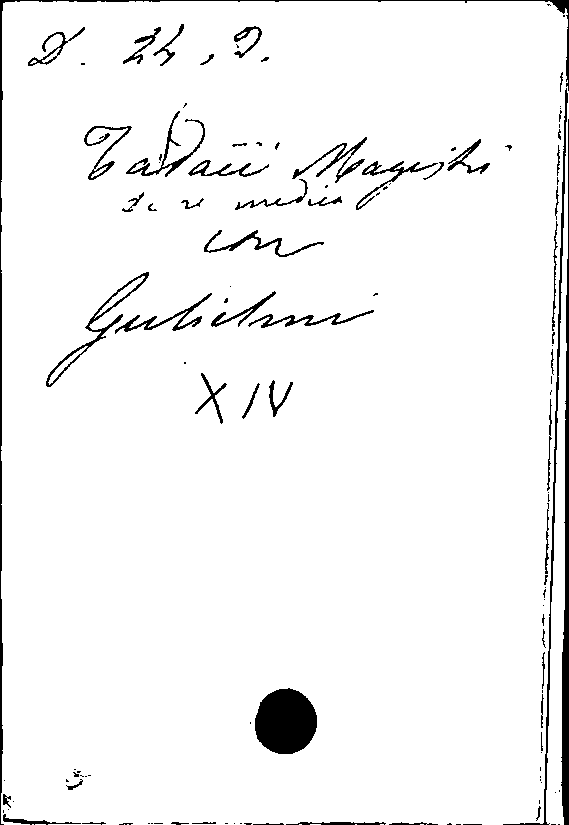 D. 24, 2.
Tadaei Magistri
de re medica
con
Gulielmi
XIV